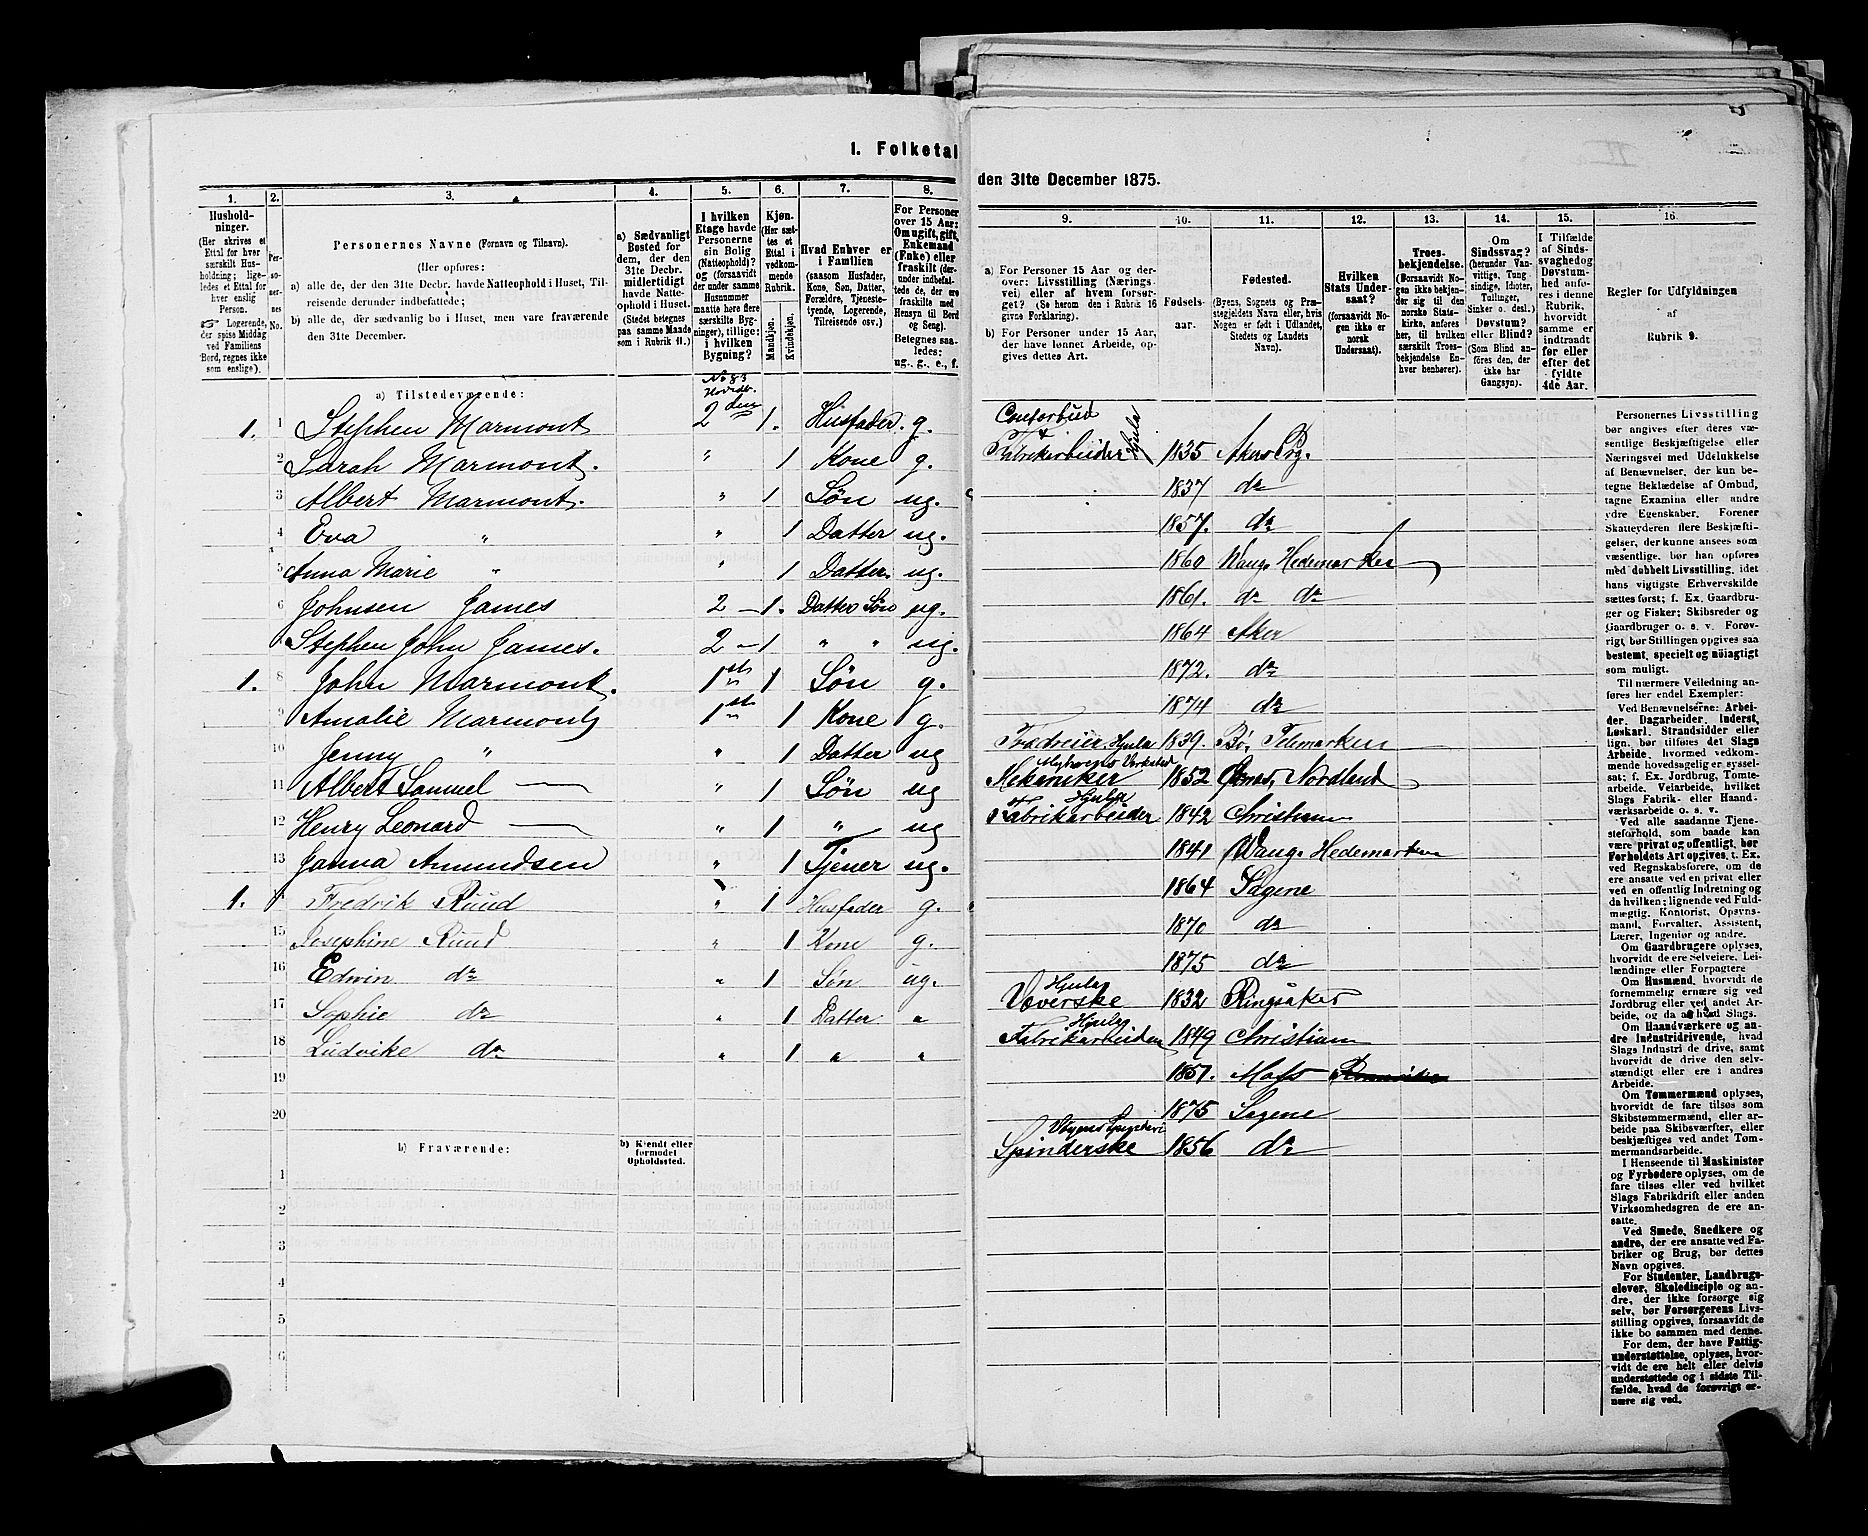 1. Folketal
den 31te December 1875.
1. 2. 3. 4. 5. 6. 7. 8.
Hushold-
ninger.
(Her skrives et
Ettal for hver
særskilt Hus-
holdning; lige-
ledes et Ettal for
hver enslig
Person.
☞ Logerende,
der spise Middag
ved Familiens
Bord, regnes ikke
som enslige).
Per-
so-
ner-
nes
No.
Personernes Navne (Fornavn og Tilnavn).
(Her opføres:
a) alle de, der den 31te Decbr. havde Natteophold i Huset, Til-
reisende derunder indbefattede;
b) alle de, der sædvanlig bo i Huset, men vare fraværende
den 31te December.
a) Sædvanligt
Bosted for
dem, der den
31te Decbr.
midlertidigt
havde Natte-
ophold i Huset.
(Stedet betegnes
paa samme Maade
som i Rubrik 11.)
I hvilken
Etage havde
Personerne
sin Bolig
(Natteophold)?
og (forsaavidt
der under samme
Husnummer
maatte høre flere
særskilte Byg-
ninger), tillige:
i hvilken
Bygning?
Kjøn.
(Her sæt-
tes et
Ettal i
vedkom-
mende
Rubrik.
Mandkjøn.
Kvindekjøn.
Hvad Enhver er
i Familien
(saasom Husfader,
Kone, Søn, Datter,
Forældre, Tjeneste-
tyende, Logerende,
Tilreisende osv.)
For Personer
over 15 Aar:
Om ugift, gift,
Enkemand
(Enke) eller
fraskilt (der-
under indbefat-
tede de, der ere
fraskilte med
Hensyn til Bord
og Seng).
Betegnes saa-
ledes:
ug., g., e., f.
a) Tilstedeværende:
No 83
1. 1 Stephen Marmont 2den 1. Husfader. g.
2 Sarah Marmont. " 1 Kone g.
3 Albert Marmont. " 1 Søn ug.
4 Eva " " 1 Datter ug.
5 Anna Marie " " 1 Datter. ug.
6 Johnsen James 2 – 1. Datter Søn ug.
Stephen John James. 2 – 1 " " ug.
1. 8 John Marmont. 1st 1 Søn g.
9 Amalie Marmont 1st 1 Kone g.
10 Jenny " " 1 Datter ug
11 Albert Samuel — " 1 Søn ug
12 Henry Leonard — " 1 " ug
13 Janna Amundsen " 1 Tjener ug.
1. Fredrik Ruud " 1 Husfader g.
15 Josephine Ruud " 1 Kone g.
16 Edwin do " 1 Søn ug.
17 Sophie do " 1 Datter "
18 Ludvike do " 1 " "
19
20
b) Fraværende:
b) Kjendt eller
formodet
Opholdssted.
1
2
3
4
5
6
9. 10. 11. 12. 13. 14. 15. 16.
a) For Personer 15 Aar og der-
over: Livsstilling (Nærings-
vei) eller af hvem forsør-
get? (Se herom den i Rubrik 16
givne Forklaring).
b) For Personer under 15 Aar,
der have lønnet Arbeide, op-
gives dettes Art.
Fødsels-
aar.
Fødested.
(Byens, Sognets og Præ-
stegjeldets Navn eller, hvis
Nogen er født i Udlandet,
Stedets og Landets
Navn).
Hvilken
Stats Under-
saat?
(forsaavidt No-
gen ikke er
norsk
Undersaat).
Troes-
bekjendelse.
(Forsaavidt No-
gen ikke bekjen-
der sig til den
norske Stats-
kirke, anføres
her, til hvilken
særskilt Troes-
bekjendelse En-
hver henhører).
Om
Sindssvag?
(herunder Van-
vittige, Tung
sindige, Idioter,
Tullinger,
Sinker o. desl.)
Døvstum?
eller Blind?
(Som Blind an-
føres den, der
ikke har
Gangsyn).
I Tilfælde
af Sinds-
svaghed og
Døvstum-
hed anfø-
res i denne
Rubrik,
hvorvidt
samme er
indtraadt
før eller
efter det
fyldte
4de Aar.
Regler for Udfyldningen
af
Rubrik 9.
Fabrikarbeider Hjula 1835 Aker Prg.
1837 do
1857. do
1860 Vang. Hedemarken
1861. do do
1864 Aker
1872. do
1874 do
Hjula 1839. Bø, Telemarken
Myhrens Verksted
Mekaniker 1852 Nordland
Hjula
Fabrikarbeider 1842 Christiania
1841 Vang. Hedemarken
1864 Sagene
1870 do
1875 do
Hjula
Væverske 1832 Ringsaker
Hjula
Fabrikarbeider 1849 Christiania
1851. Moss
1875 Sagene
Spinderske 1856 do
Personernes Livsstilling
bør angives efter deres væ-
sentlige Beskjæftigelse eller
Næringsvei med Udelukkelse
af Benævnelser, der kun be-
tegne Beklædelse af Ombud,
tagne Examina eller andre
ydre Egenskaber. Forener
Skatteyderen flere Beskjæfti-
gelser, der kunne ansees som
væsentlige, bør han opføres
med dobbelt Livsstilling, idet
hans vigtigste Erhvervskilde
sættes først; f. Ex. Gaardbru-
ger og Fisker; Skibsreder og
Gaardbruger o. s. v. Forøv-
rigt bør Stillingen opgives saa
bestemt, specielt og nøiagtigt
som muligt.
Til nærmere Veiledning an-
føres her endel Exempler:
Ved Benævnelserne: Arbei-
der, Dagarbeider, Inderst,
Løskarl, Strandsidder eller
lign. bør tilføies det Slags
Arbeide, hvormed vedkom-
mende hovedsagelig er syssel-
sat; f. Ex. Jordbrug, Tomte-
arbeide, Veiarbeide, hvilket
Slags Fabrik- eller Haand-
værksarbeide o. s. v.
Ved alle saadanne Tjene-
steforhold, som baade kan
være privat og offentligt, bør
Forholdets Art opgives, t. Ex.
ved Regnskabsførere, om de
ere ansatte ved en privat eller
ved en offentlig Indretning og
da hvilken; lignende ved Fuld-
mægtig, Kontorist, Opsyns-
mand, Forvalter, Assistent,
Lærer, Ingeniør og andre.
Om Gaardbrugere oplyses,
hvorvidt de ere Selveiere, Lei-
lændinge eller Forpagtere
Om Husmænd, hvorvidt de
fornemmelig ernære sig ved
Jordbrug eller ved andet Ar-
beide, og da af hvad Slags.
Om Haandværkere og an-
dre Industridrivende, hvad
Slags Industri de drive, samt
hvorvidt de drive den selv-
stændigt eller ere i andres
Arbeide.
Om Tømmermænd oplyses,
hvorvidt de fare tilsøs som
Skibstømmermænd, eller ar-
beide paa Skibsværfter, eller
beskjæftiges ved andet Tøm-
mermandsarbeide.
I Henseende til Maskinister
og Fyrbødere oplyses, om de
fare tilsøs eller ved hvilket
Slags Fabrikdrift eller anden
Virksomhedsgren de ere an-
satte.
Ved Smede, Snedkere og
andre, der ere ansatte ved Fa-
briker og Brug, bør dettes
Navn opgives.
For Studenter, Landbrugs-
elever, Skoledisciple og an-
dre, der ikke forsørge sig
selv, bør Forsørgerens Livs-
stilling opgives, forsaavidt de
ikke bo sammen med denne.
For dem, der have Fattig-
understøttelse, oplyses, hvor-
vidt de ere helt eller delvis
understøttede og i sidste Til-
fælde, hvad de forøvrigt er-
nære sig ved.